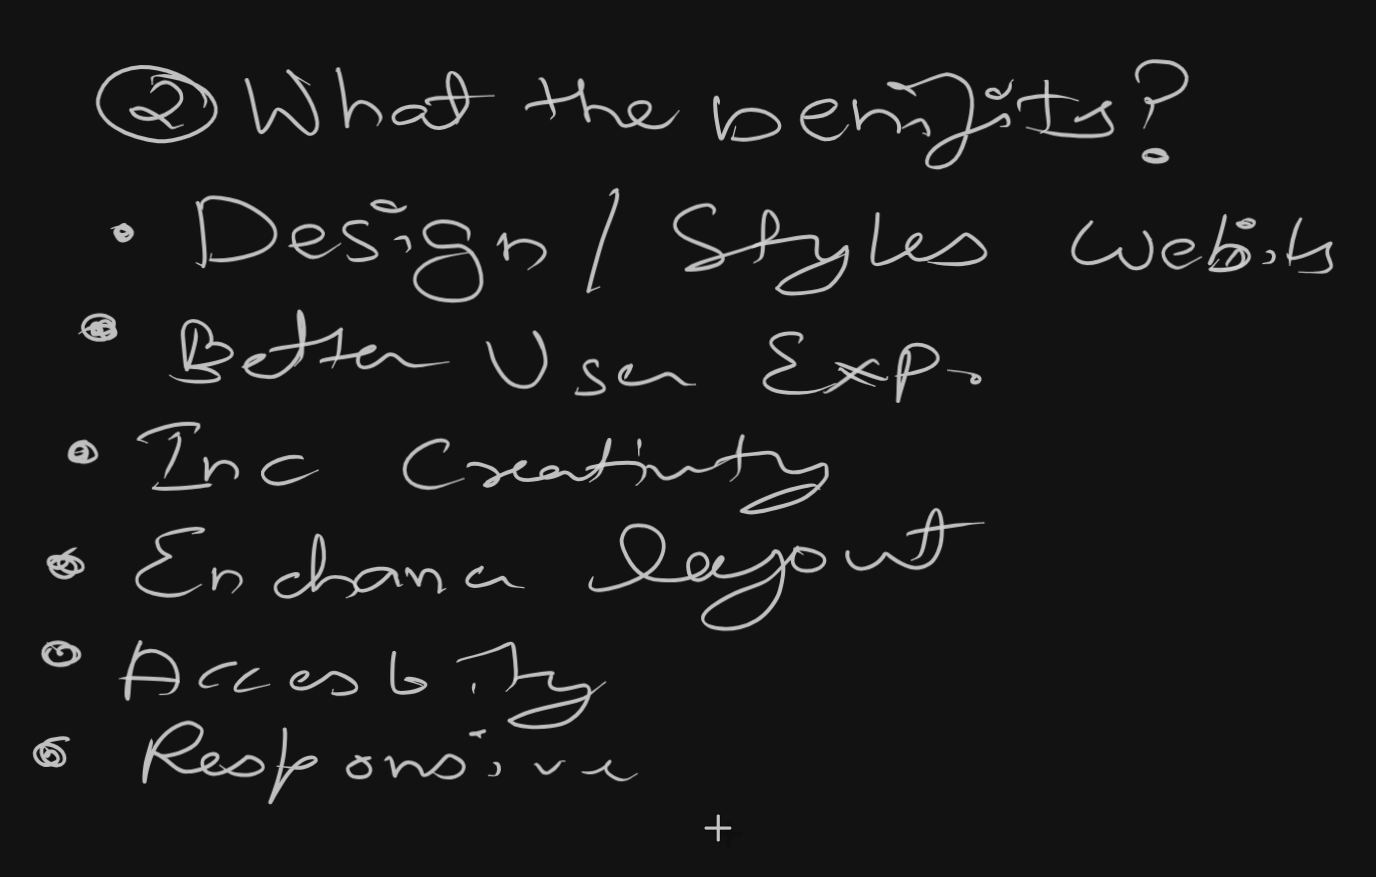 ② What the benifits?
• Design / Styles
• Better User Exp.
• Inc Creativity
• Enchance layout
• Accesbity
• Responsive